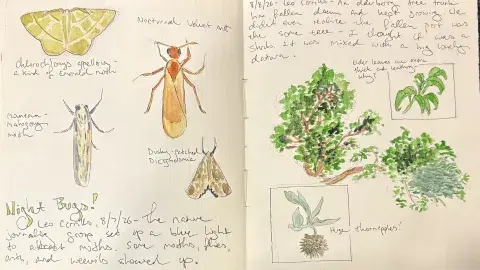 Nocturnal Velvet ant
a kind of Emerald moth
Mexican
Mahogany
moth
Dusky-patched
Dichordophora
Night Bugs!
Leo Carrillo, 8/7/26 - The nature
journaling group set up a blue light
to attract moths. Some moths, flies,
ants, and weevils showed up.
8/8/26 - Leo Carrillo - An elderberry tree trunk
has fallen down and kept growing. We
didn't even realize the fallen part was
the same tree - I thought it was a
shrub. It was mixed with a big woody
datura.
older leaves are more
thick and leathery -
why?
Huge thornapples!